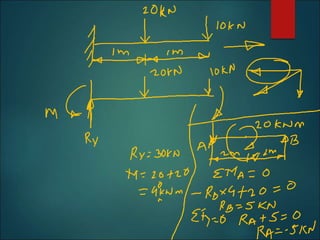 20kN
10kN
1m 1m
20kN 10kN
M
Ry
20kNm
A B
2m 2m
Ry = 30kN
M = 20+20
= 40kNm
ΣMA = 0
- RB×4+20 = 0
RB = 5KN
ΣFy=0 RA+5=0
RA=-5KN